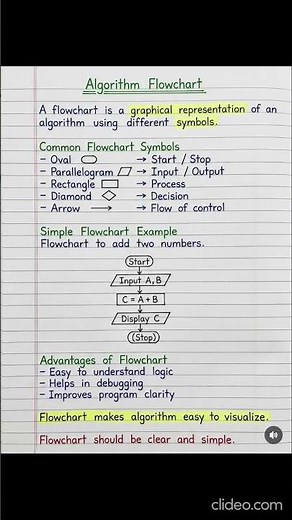 Algorithm Flowchart
A flowchart is a graphical representation of an
algorithm using different symbols.
Common Flowchart Symbols
- Oval → Start / Stop
- Parallelogram → Input / Output
- Rectangle → Process
- Diamond → Decision
- Arrow → Flow of control
Simple Flowchart Example
Flowchart to add two numbers.
Start
Input A, B
C = A + B
Display C
(Stop)
Advantages of Flowchart
- Easy to understand logic
- Helps in debugging
- Improves program clarity
Flowchart makes algorithm easy to visualize.
Flowchart should be clear and simple.
clideo.com